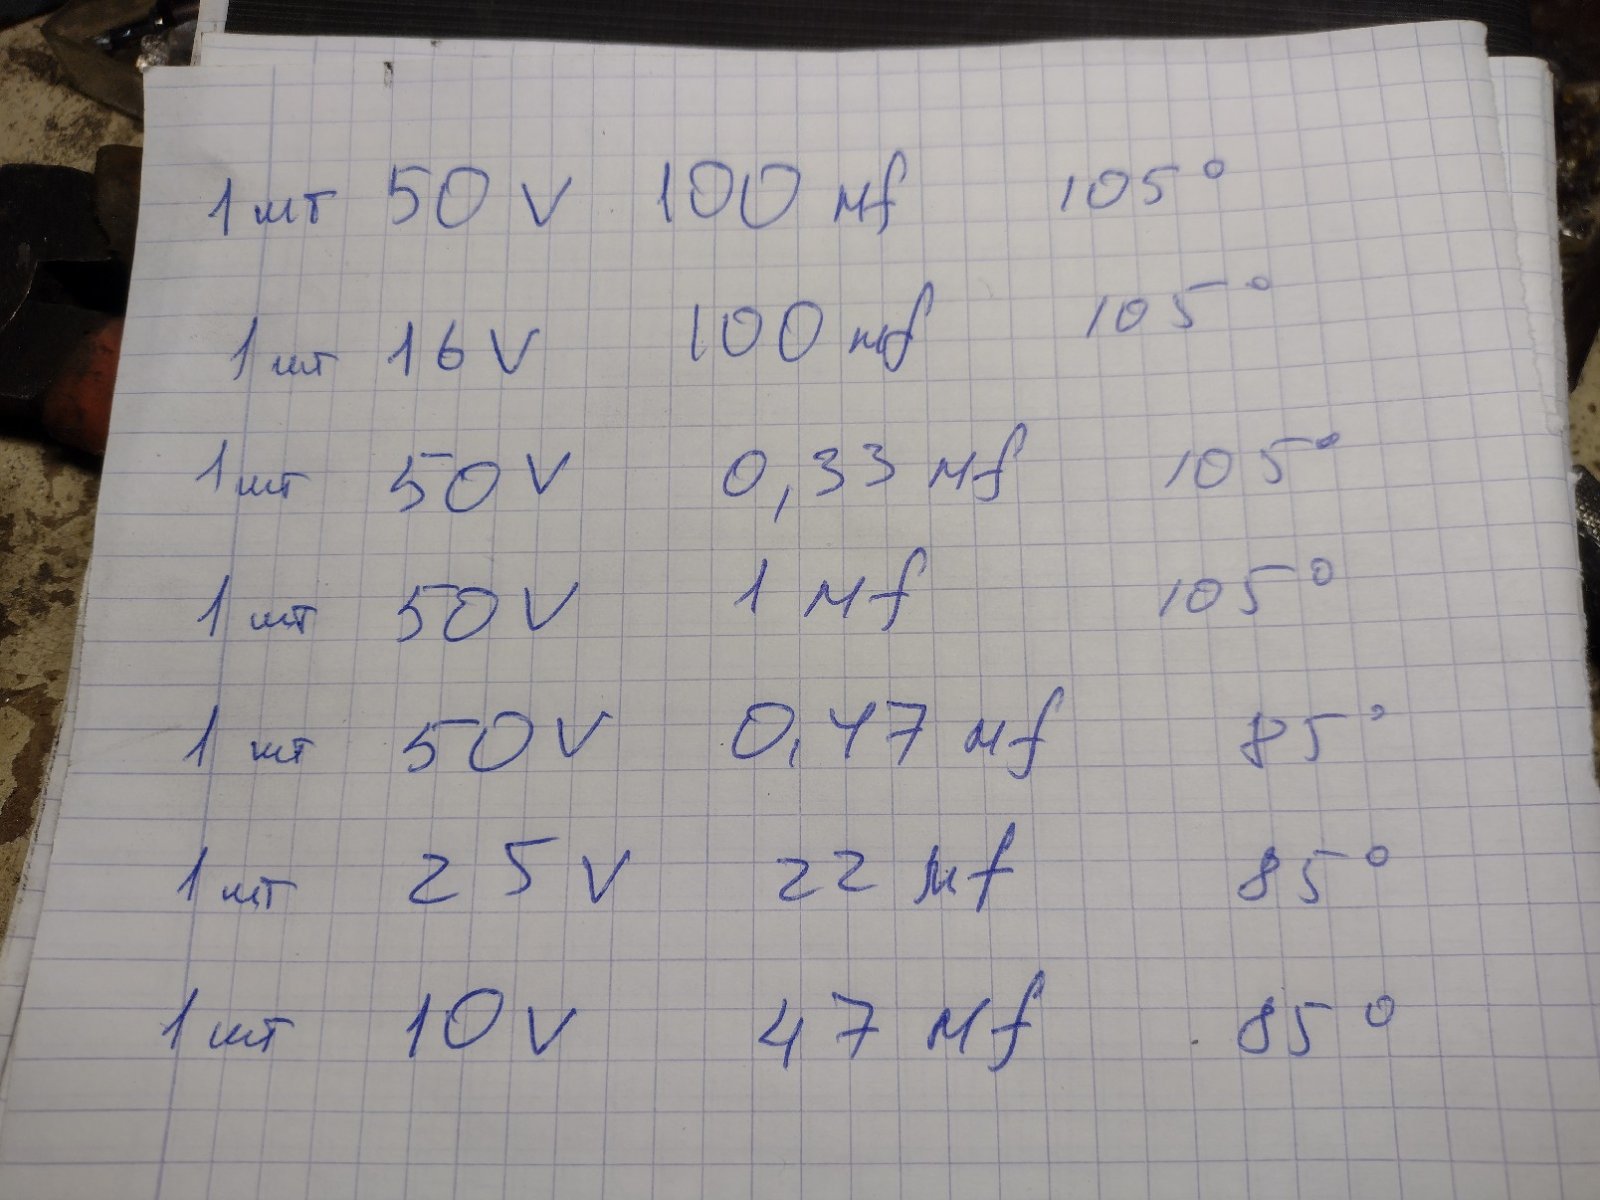 1 шт 50 V 100 мf 105°
1 шт 16 V 100 мf 105°
1 шт 50 V 0,33 мf 105°
1 шт 50 V 1 мf 105°
1 шт 50 V 0,47 мf 85°
1 шт 25 V 22 мf 85°
1 шт 10 V 47 мf 85°